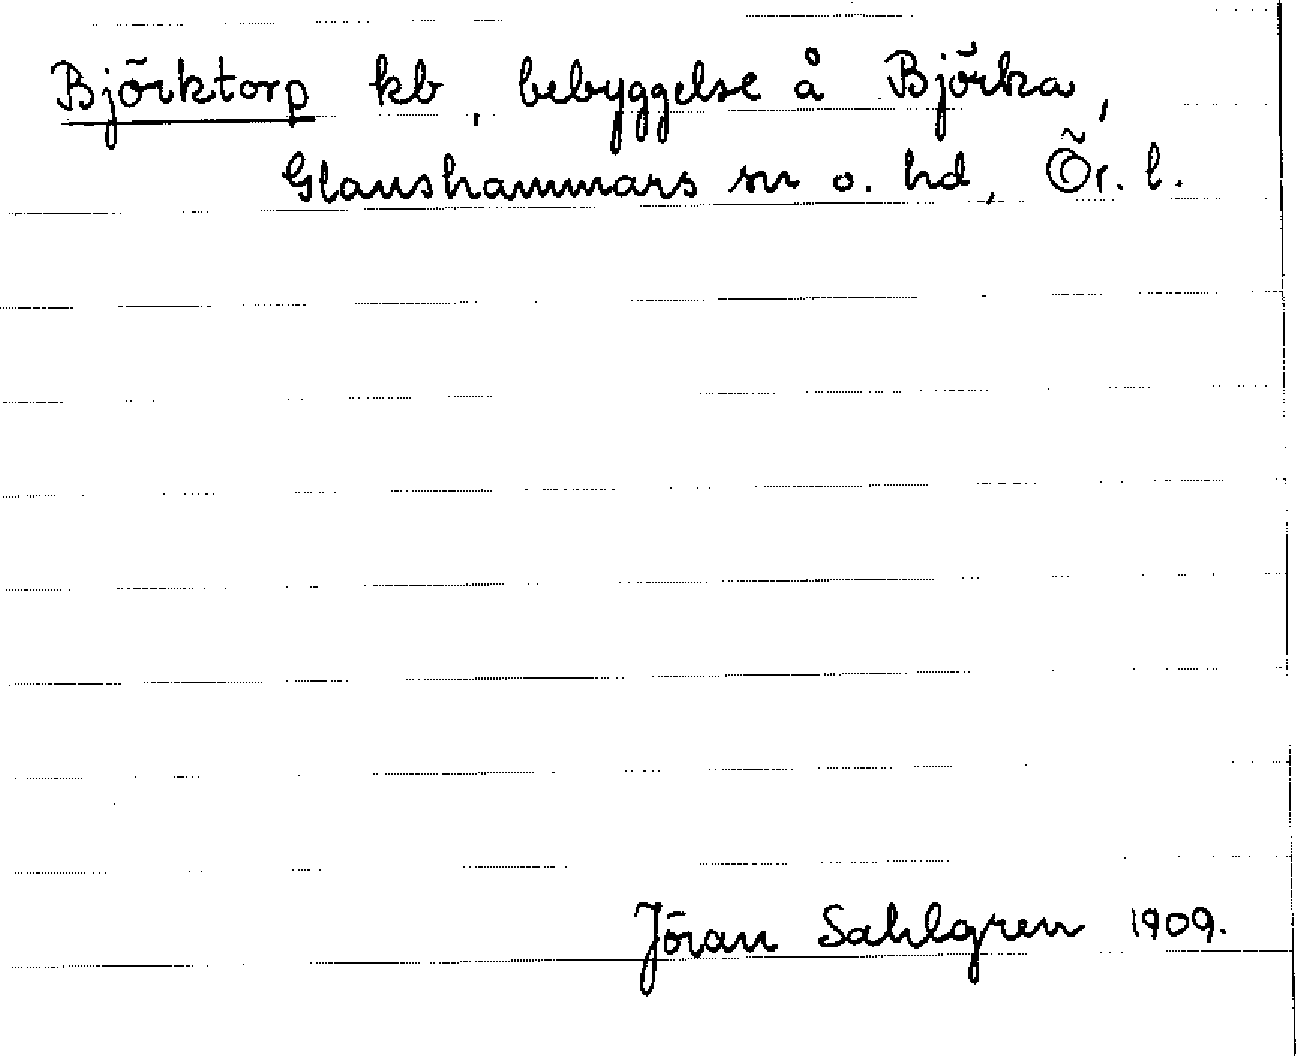 Björktorp kb, bebyggelse å Björka,
Glanshammars sn o. hd, Ör. l.
Jöran Sahlgren 1909.